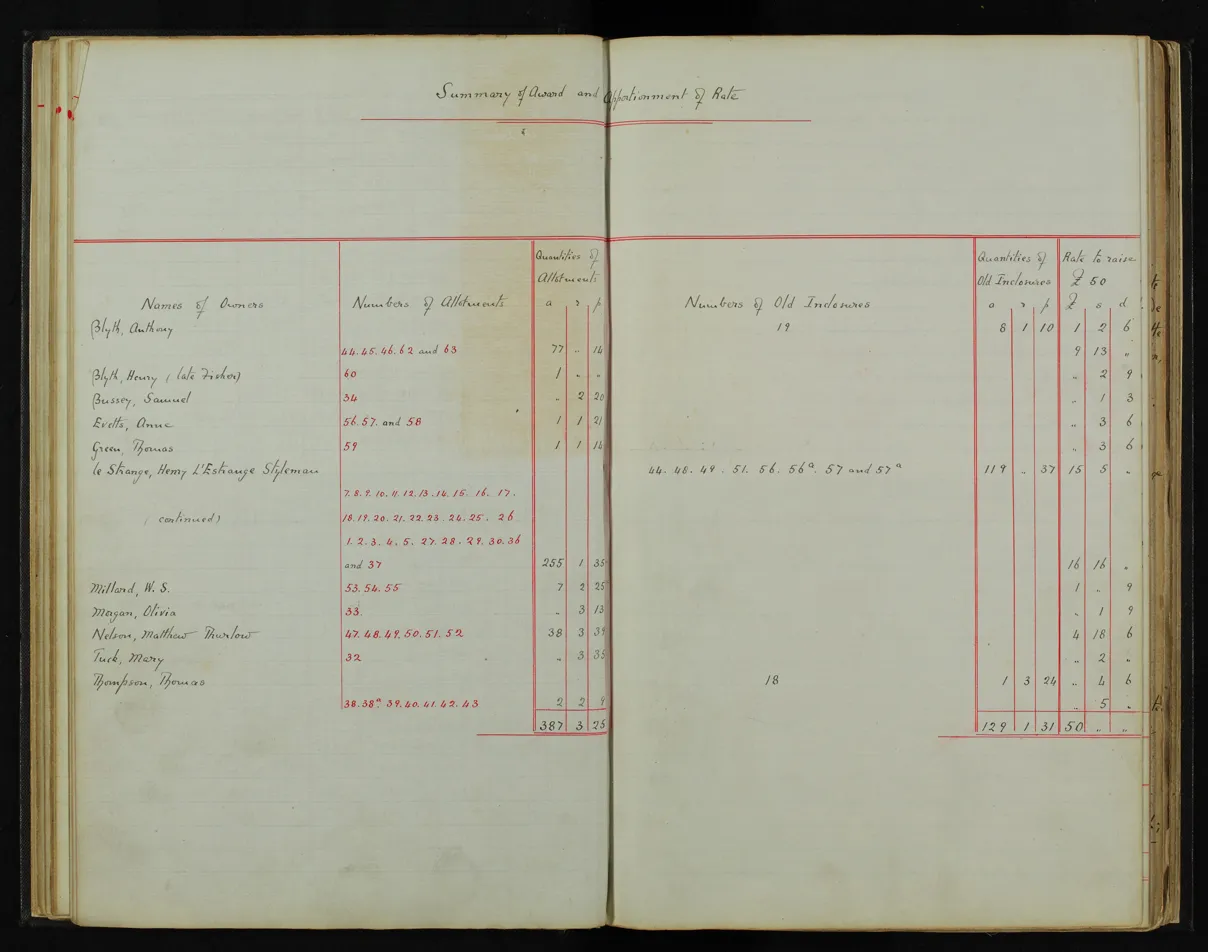 Summary of Award and Apportionment of Rate
Quantities of Quantities of Rate to raise
Allotments Old Inclosures £ 50
Names of Owners Numbers of Allotments a r p Numbers of Old Inclosures a r p £ s d
Blyth, Anthony 19 8 1 10 1 2 6
44. 45. 46. 62 and 63 77 .. 14 9 13 "
Blyth, Henry (late Fisher) 60 1 " " " 2 9
Bussey, Samuel 34 .. 2 20 " 1 3
Evetts, Anne 56. 57. and 58 1 1 21 " 3 6
Green, Thomas 59 1 1 14 " 3 6
le Strange, Henry L'Estrange Styleman 44. 48. 49. 51. 56. 56a. 57 and 57a 119 .. 37 15 5 "
7. 8. 9. 10. 11. 12. 13. 14. 15. 16. 17.
(continued) 18. 19. 20. 21. 22. 23. 24. 25. 26
1. 2. 3. 4. 5. 27. 28. 29. 30. 36
and 37 255 1 35 16 16 "
Millard, W. S. 53. 54. 55 7 2 25 1 " 9
Magan, Olivia 33. " 3 13 " 1 9
Nelson, Matthew Thurlow 47. 48. 49. 50. 51. 52 38 3 39 4 18 6
Tuck, Mary 32 " 3 35 " 2 "
Thompson, Thomas 18 1 3 24 " 4 6
38. 38a. 39. 40. 41. 42. 43 2 2 9 " 5 "
387 3 25 129 1 31 50 " "